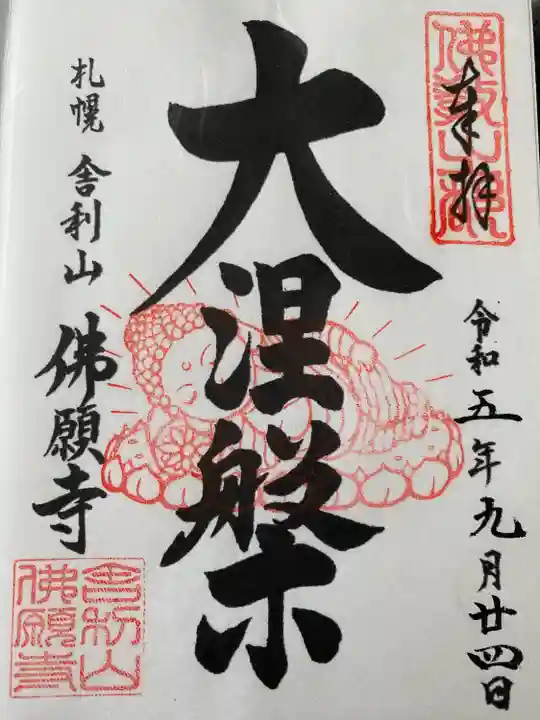 奉拝
令和五年九月廿四日
大涅槃
札幌 舎利山 佛願寺
舎利山
佛願寺